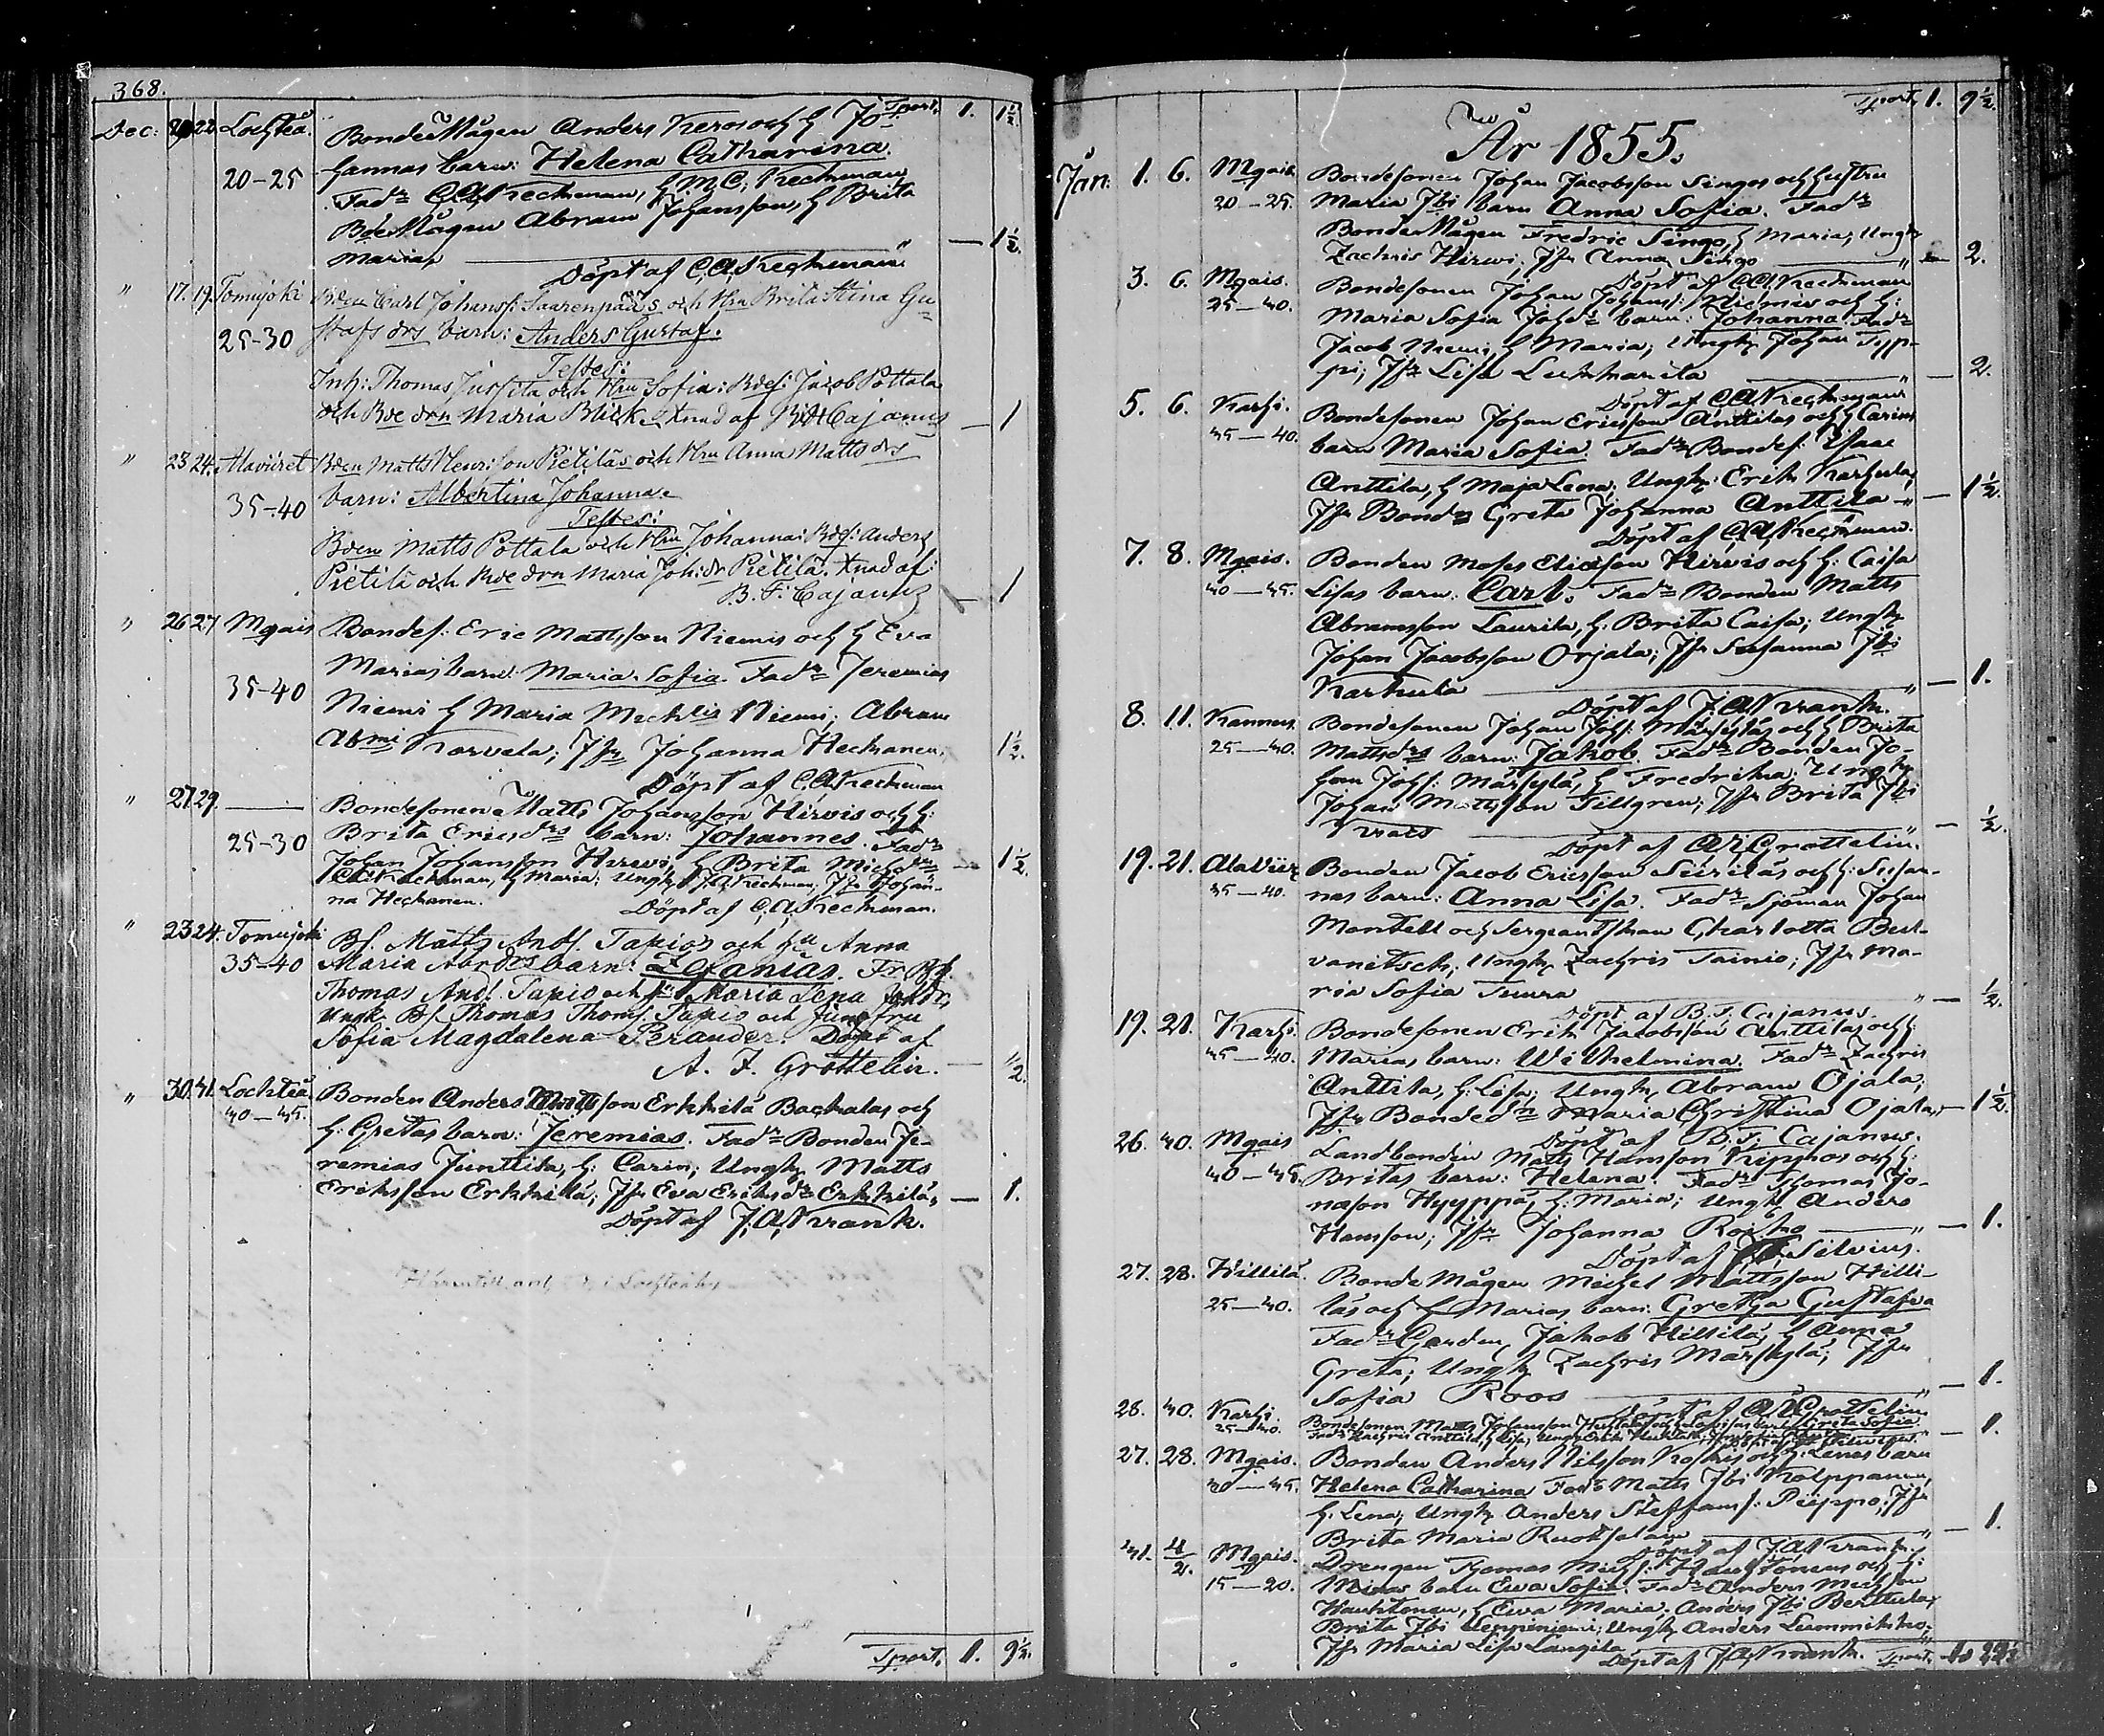 368.
Tport. 1. 1½.
Dec: 22 Lochteå. BondeMågen Anders Keros och H Jo-
hannas barn: Helena Catharina.
20-25 Fadr C.A. Keckman, H M.C. Keckman,
BdeMågen Abram Johansson, H Brita
Maria, — 1½.
Döpt af C.A. Keckman
" 17. 19. Tomujoki Bden Carl Johanss: Saarenpääs och Hru Brita Stina Gu-
25-30 stafs drs barn: Anders Gustaf.
Testes:
Inh: Thomas Jussila och Hru Sofia: Bdes: Jacob Pottala
och Bde drn Maria Blick Xnad af B.F. Cajanus — 1
" 23 24. Alaviiret Bden Matts Henrisson Pietiläs och Hru Anna Matts drs
35-40 barn: Albertina Johanna.
Testes:
Bden Matts Pottala och Hru Johanna: Bdes: Anders
Pietilä och Bde drn Maria Joh: dr Pietilä. Xnad af:
B. F. Cajanus — 1
" 26 27 Mgais Bondes: Eric Mattsson Niemis och H Eva
Marias barn: Maria Sofia. Fadr Jeremias
35-40 Niemi H Maria Niemi; Abram
Abmi Korvela; Jfr Johanna Heckanen, 1½.
Döpt af C.A. Keckman
" 27 29. — Bondesonen Matts Johansson Hirvis och H:
25-30 Brita Ericsdrs barn: Johannes. Fadr
Johan Johansson Hirvi, H Brita Michdr — 1½.
C.A. Keckman, H Maria; Ungk J.A. Keckman; Jfr Johan-
na Heckanen. Döpt af C.A. Keckman.
" 23 24. Tomujoki Bs. Matts Ands. Tapios och Hu Anna
35-40 Maria Abr drs barn: Zefanias. Fr Bs.
Thomas And. Tapio och Maria Lena
Ungk Bs Thomas Thoms. Tapio och Jungfru
Sofia Magdalena Perander. Döpt af
A. F. Grottelin. — ½
" 30. 31. Lochteå Bonden Anders Mattsson Erkkilä Backalas och
40—45. H: Gretas barn: Jeremias. Fadr Bonden Je-
remias Junttila, H: Carin; Ungk Matts
Eriksson Erkkilä; Jfr Eva Eriksdr Erkkilä, — 1.
Döpt af J.A. Krank.
Tport. 1. 9½.
Tport. 1. 9½.
År 1855.
Jan: 1. 6. Mgais. Bondesonen Johan Jacobsson Singos och hustru
20—25. Maria Jbi barn Anna Sofia. Fadr
BondeMågen Fredric Singo, H Maria, Ungk
Zachris Hirvi; Jfr Anna Singo — 2.
Döpt af C.A. Keckman
3. 6. Mgais. Bondesonen Johan Johanss: Niemis och H:
25—40. Maria Sofia Johdr barn: Johanna Fadr
Jacob Niemi, H Maria; Ungk Johan Typ-
pi; Jfr Lisa — 2.
Döpt af C.A. Keckman
5. 6. Karhi. Bondesonen Johan Ericsson Anttilas och H Carins
35—40. barn Maria Sofia. Fadr Bondes. Isaac
Anttila, H Maja Lena, Ungk: Erik Karhula,
Jfr Bondr Greta Johanna Anttila — 1½.
Döpt af C.A. Keckman.
7. 8. Mgais. Bonden Moses Eliasson Hirvis och H: Caisa
40—45. Lisas barn: Carl. Fadr Bonden Matts
Abramsson Laurila, H: Brita Caisa; Ungk
Johan Jacobsson Orjala; Jfr Susanna Jbi
Karhula — 1.
Döpt af J.A. Krank.
8. 11. Kannus. Bondesonen Johan Johs: Märsyläs och H Brita
25—40. Mattsdrs barn: Jakob. Fadr Bonden Jo-
han Johs: Märsylä, H Fredrika; Ungk
Johan Mattsson Tillgren; Jfr Brita Jbi
— ½.
Döpt af A.F. Grottelin.
19. 21. Alaviir Bonden Jacob Ericsson Siiriläs och H: Susan-
35—40. nas barn: Anna Lisa. Fadr Sjöman Johan
Montell och Sergeantskan Charlotta Best-
vanitsch; Ungk Zachris Tainio; Jfr Ma-
ria Sofia Tuura — ½.
Döpt af B.F. Cajanus.
19. 20. Karhi. Bondesonen Erik Jacobsson Anttilas och H:
35—40. Marias barn: Wilhelmina. Fadr Zachris
Anttila, H: Lisa; Ungk Abram Ojala;
Jfr Bondedr Maria Christina Ojala, — 1½.
Döpt af B.F. Cajanus.
26. 40. Mgais Landbonden Matts Hansson Kippos och H:
40—45. Britas barn: Helena. Fadr Thomas Jo-
nasson Hyyppä, H: Maria; Ungk Anders
Hansson; Jfr Johanna Roiko — 1.
Döpt af Silvius.
27. 28. Hillilä. BondeMågen Michel Mattsson Hilli-
25—40. läs och H Marias barn: Gretha Gustafva
Fadr Jakob Hillilä, H Anna
Greta; Ungk Zachris Märsylä; Jfr
Sofia Roos — 1.
Döpt af A.F. Grottelin
28. 40. Karhi. Bondesonen Matts Johansson barn Greta Sofia
25—40. Fadr Zachris Anttila, H Lisa, Ungk — 1.
27. 28. Mgais. Bonden Anders Nilsson Koskis och H: Lenas barn
40—45. Helena Catharina Fadr Matts Jbi Kalppanen,
H. Lena, Ungk Anders Steffanss: Piippo, Jfr
Brita Maria Ruotsalain — 1.
Döpt af J.A. Krank.
31. 4/2. Mgais. Drengen Thomas Michs: Hauktonens och H:
15—20. Minas barn Ewa Sofia. Fadr Anders Michsson
Hauktonen, H Ewa Maria; Anders Jbi Berttula,
Brita Jbi Leppiniemi; Ungk Anders Lummikko,
Jfr Maria Lisa Långila
Döpt af J.A. Krank. Tport.